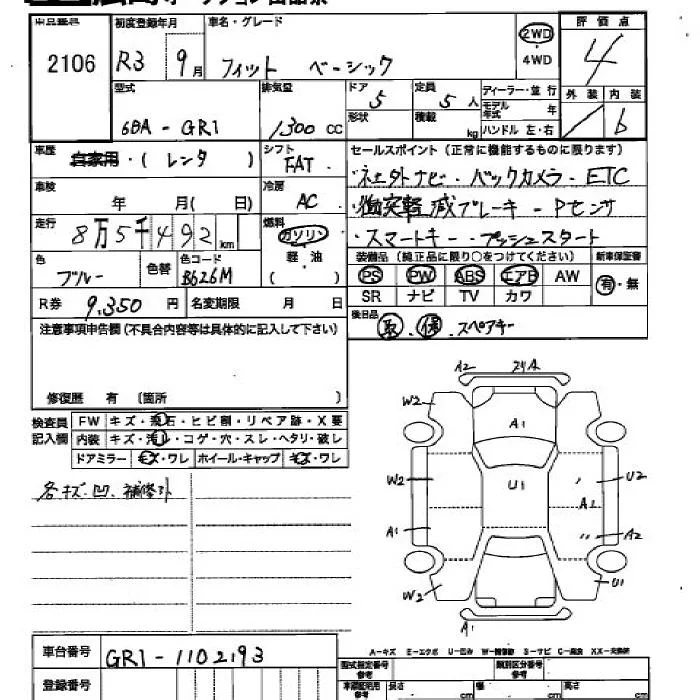 2106
初度登録年月 車名・グレード 評価点
R3 9月 フィット ベーシック 2WD・4WD 4
型式 排気量 ドア 定員 ディーラー・並行 外装 内装
6BA-GR1 1300cc 5 5人 モデル年式 年 b
形状 積載 kg ハンドル 左・右
車歴 自家用・(レンタ) シフト FAT セールスポイント(正常に機能するものに限ります)
車検 年 月( 日) 冷房 AC ・社外ナビ・バックカメラ・ETC
・衝突軽減ブレーキ・Pセンサ
走行 8万5千492km 燃料 ガソリン・軽・油( ) ・スマートキー・プッシュスタート
色 ブルー 色替 色コード B626M 装備品(純正品に限り○をつけてください) 新車保証書
PS PW ABS エアB AW 有・無
SR ナビ TV カワ
R券 9,350円 名変期限 月 日 後日品 取・保・スペアキー
注意事項申告欄(不具合内容等は具体的に記入して下さい)
修復歴 有 〔箇所 〕
検査員記入欄 FW キズ・飛石・ヒビ割・リペア跡・X要
内装 キズ・汚れ・コゲ・穴・スレ・ヘタリ・破レ
ドアミラー キズ・ワレ ホイール・キャップ キズ・ワレ
各キズ、凹、補修外
A2
W2
A1
W2 U1 U2
A1 A2
W2 U1
A1
A-キズ E-エクボ U-凹み W-補修跡 S-サビ C-腐食 XX-交換済
車台番号 GR1-1102193
型式指定番号 参考 類別区分番号 参考
登録番号 長さ cm 幅 cm 高さ cm